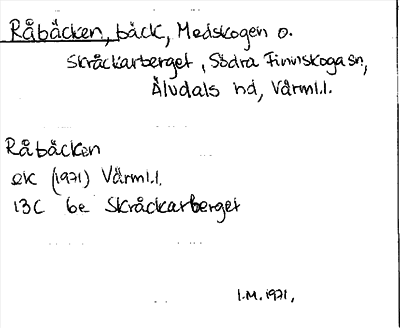 Råbäcken, bäck, Medskogen o.
Skråckarberget, Södra Finnskoga sn,
Älvdals hd, Värml.l.
Råbäcken
ek (1971) Värml.l.
13C 6e Skråckarberget
I.M. 1971,